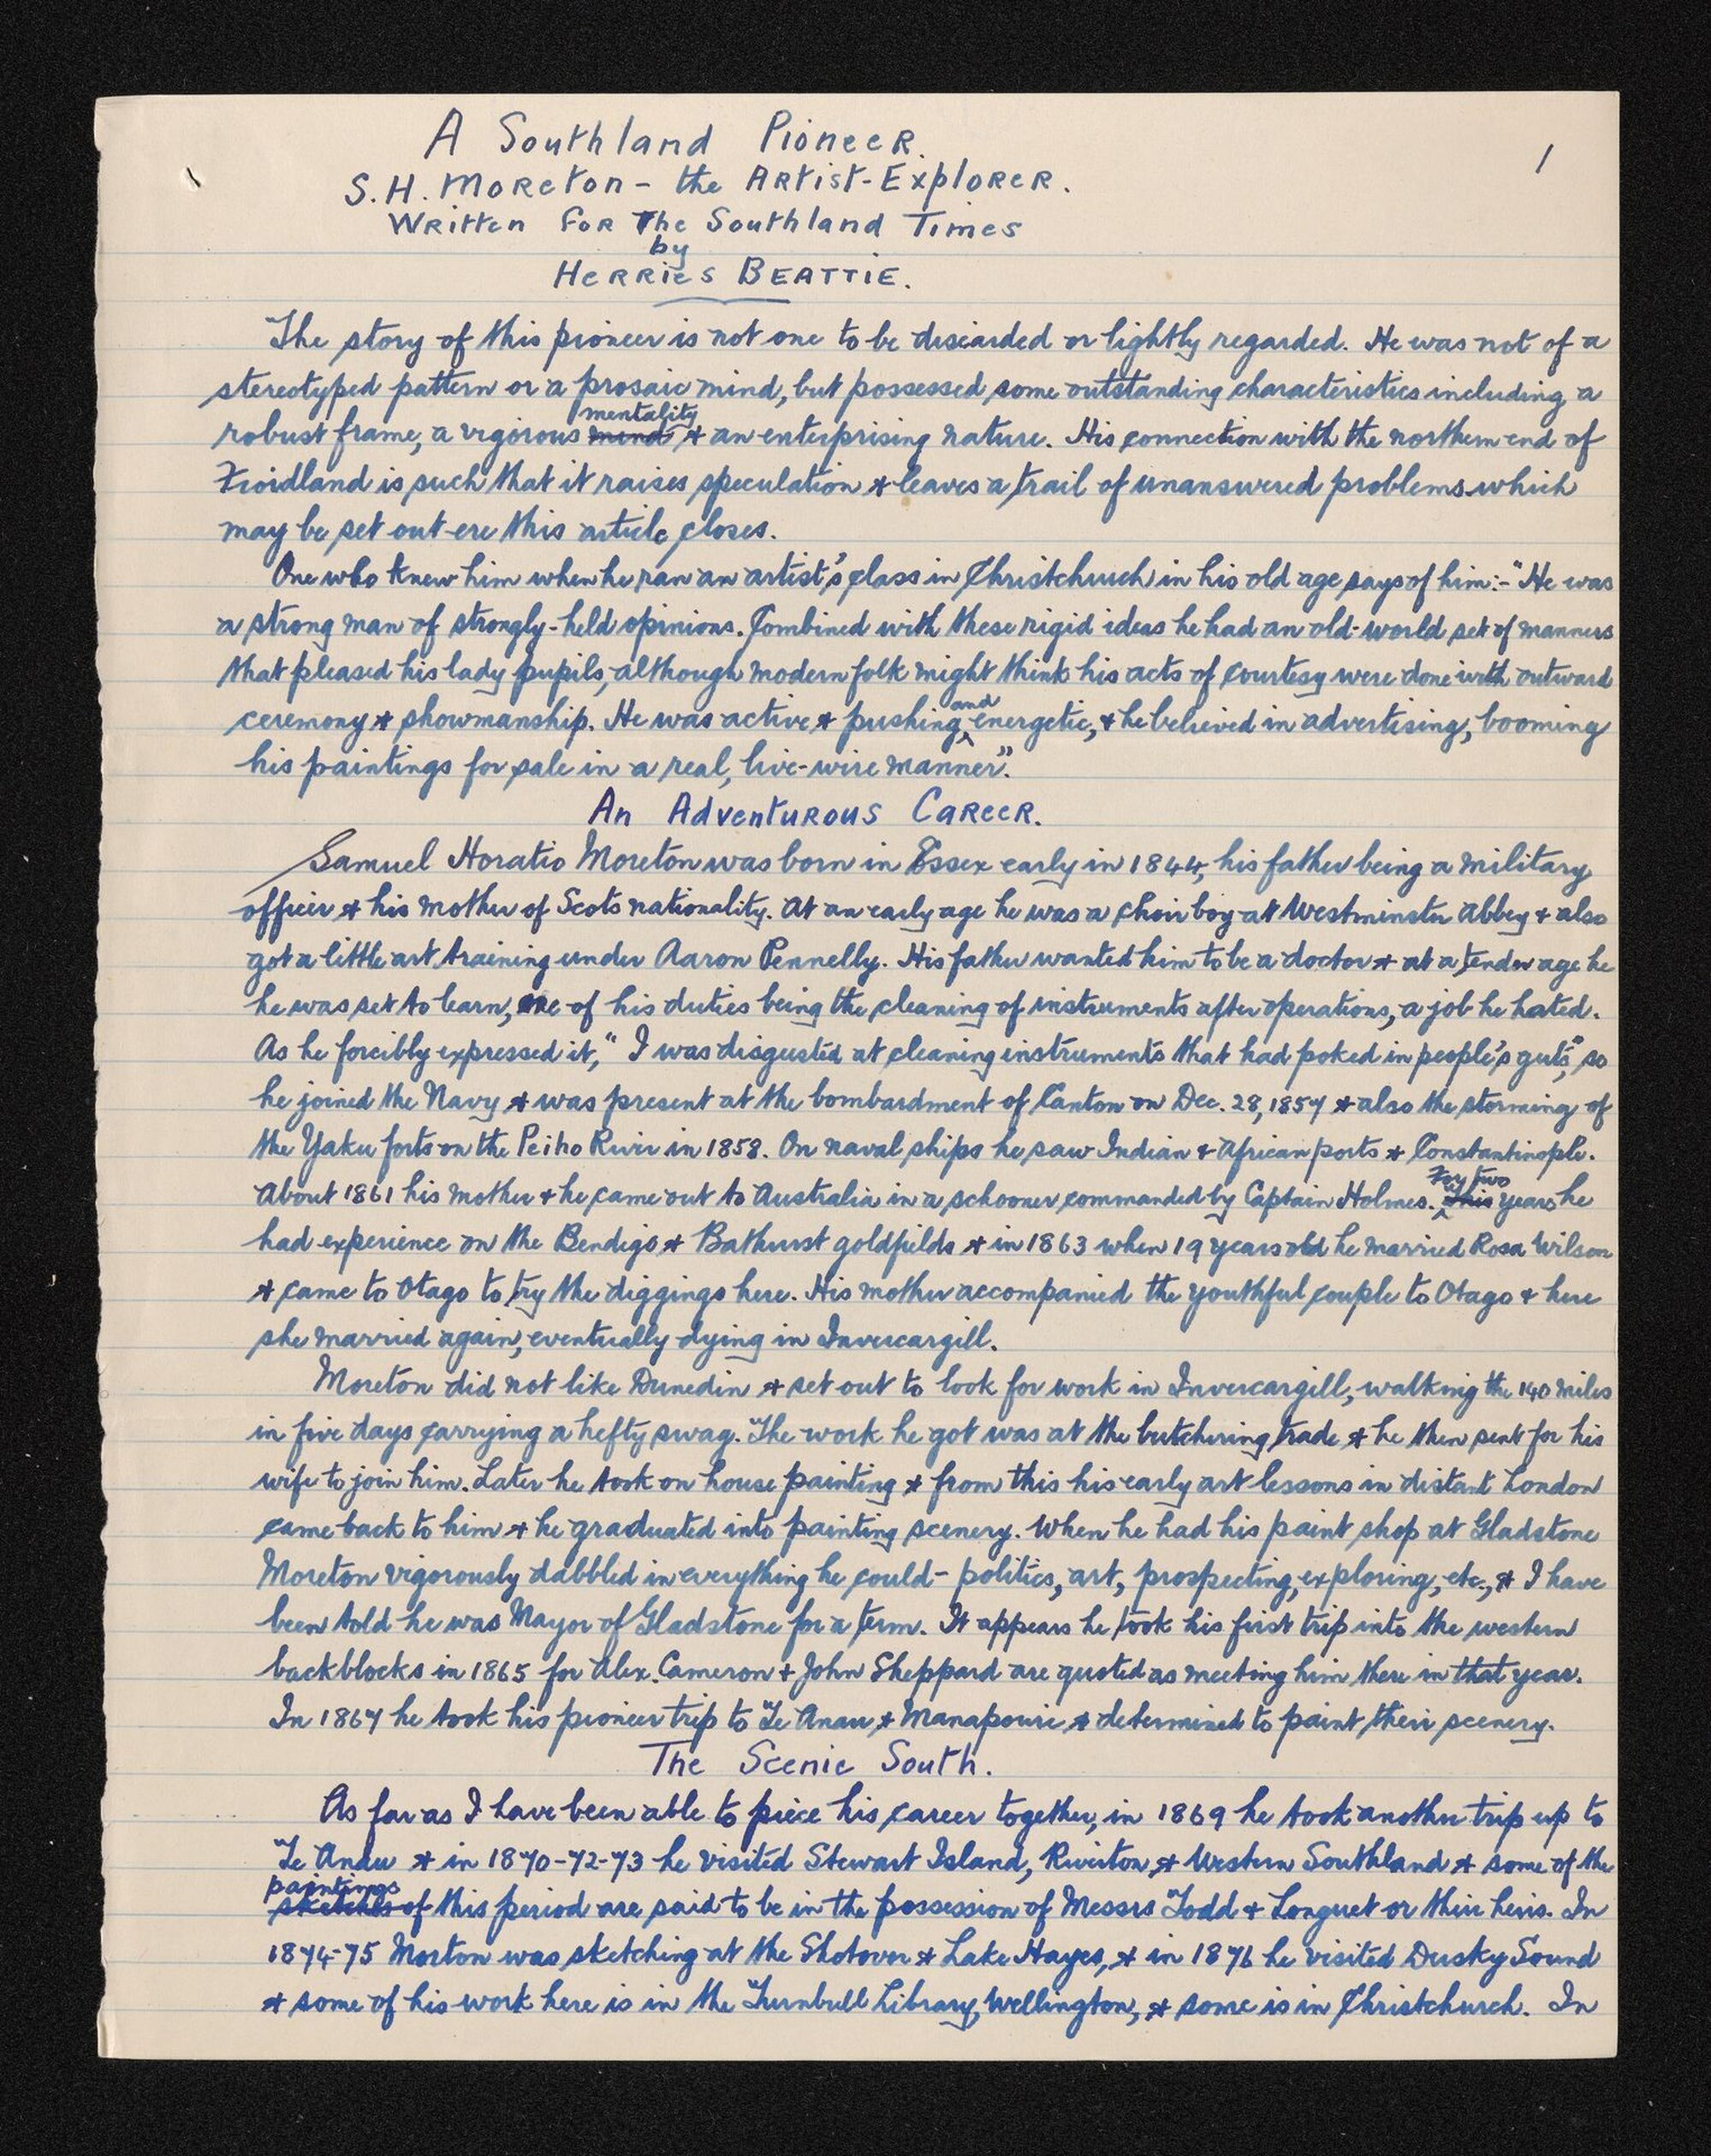 A Southland Pioneer.
1
S.H. Moreton - the Artist-Explorer.
Written for The Southland Times
by
Herries Beattie.
The story of this pioneer is not one to be discarded or lightly regarded. He was not of a
stereotyped pattern or a prosaic mind, but possessed some outstanding characteristics including a
mentality
robust frame, a vigorous mind & an enterprising nature. His connection with the northern end of
Fiordland is such that it raises speculation & leaves a trail of unanswered problems which
may be set out ere this article closes.
One who knew him when he ran an artist's class in Christchurch in his old age says of him:- "He was
a strong man of strongly-held opinions. Combined with these rigid ideas he had an old-world set of manners
that pleased his lady pupils, although modern folk might think his acts of courtesy were done with outward
and
ceremony & showmanship. He was active & pushing, energetic, & he believed in advertising, booming
his paintings for sale in a real, live-wire manner".
An Adventurous Career.
Samuel Horatio Moreton was born in Essex early in 1844, his father being a military
officer & his mother of Scots nationality. At an early age he was a choir boy at Westminster Abbey & also
got a little art training under Aaron Pennelly. His father wanted him to be a doctor & at a tender age he
he was set to learn, one of his duties being the cleaning of instruments after operations, a job he hated.
As he forcibly expressed it, "I was disgusted at cleaning instruments that had poked in people's guts," so
he joined the Navy & was present at the bombardment of Canton on Dec. 28, 1857 & also the storming of
the Yaku forts on the Peiho River in 1858. On naval ships he saw Indian & African ports & Constantinople.
For two
About 1861 his mother & he came out to Australia in a schooner commanded by Captain Holmes. This years he
had experience on the Bendigo & Bathurst goldfields & in 1863 when 19 years old he married Rosa Wilson
& came to Otago to try the diggings here. His mother accompanied the youthful couple to Otago & here
she married again, eventually dying in Invercargill.
Moreton did not like Dunedin & set out to look for work in Invercargill, walking the 140 miles
in five days carrying a hefty swag. The work he got was at the butchering trade & he then sent for his
wife to join him. Later he took on house painting & from this his early art lessons in distant London
came back to him & he graduated into painting scenery. When he had his paint shop at Gladstone
Moreton vigorously dabbled in everything he could - politics, art, prospecting, exploring, etc., & I have
been told he was Mayor of Gladstone for a term. It appears he took his first trip into the western
backblocks in 1865 for Alex. Cameron & John Sheppard are quoted as meeting him there in that year.
In 1867 he took his pioneer trip to Te Anau & Manapouri, & determined to paint their scenery.
The Scenic South.
As far as I have been able to piece his career together, in 1869 he took another trip up to
Te Anau & in 1870-72-73 he visited Stewart Island, Riverton & Western Southland & some of the
paintings
sketches of this period are said to be in the possession of Messrs Todd & Longuet or their heirs. In
1874-75 Morton was sketching at the Shotover & Lake Hayes, & in 1876 he visited Dusky Sound
& some of his work here is in the Turnbull Library, Wellington, & some is in Christchurch. In